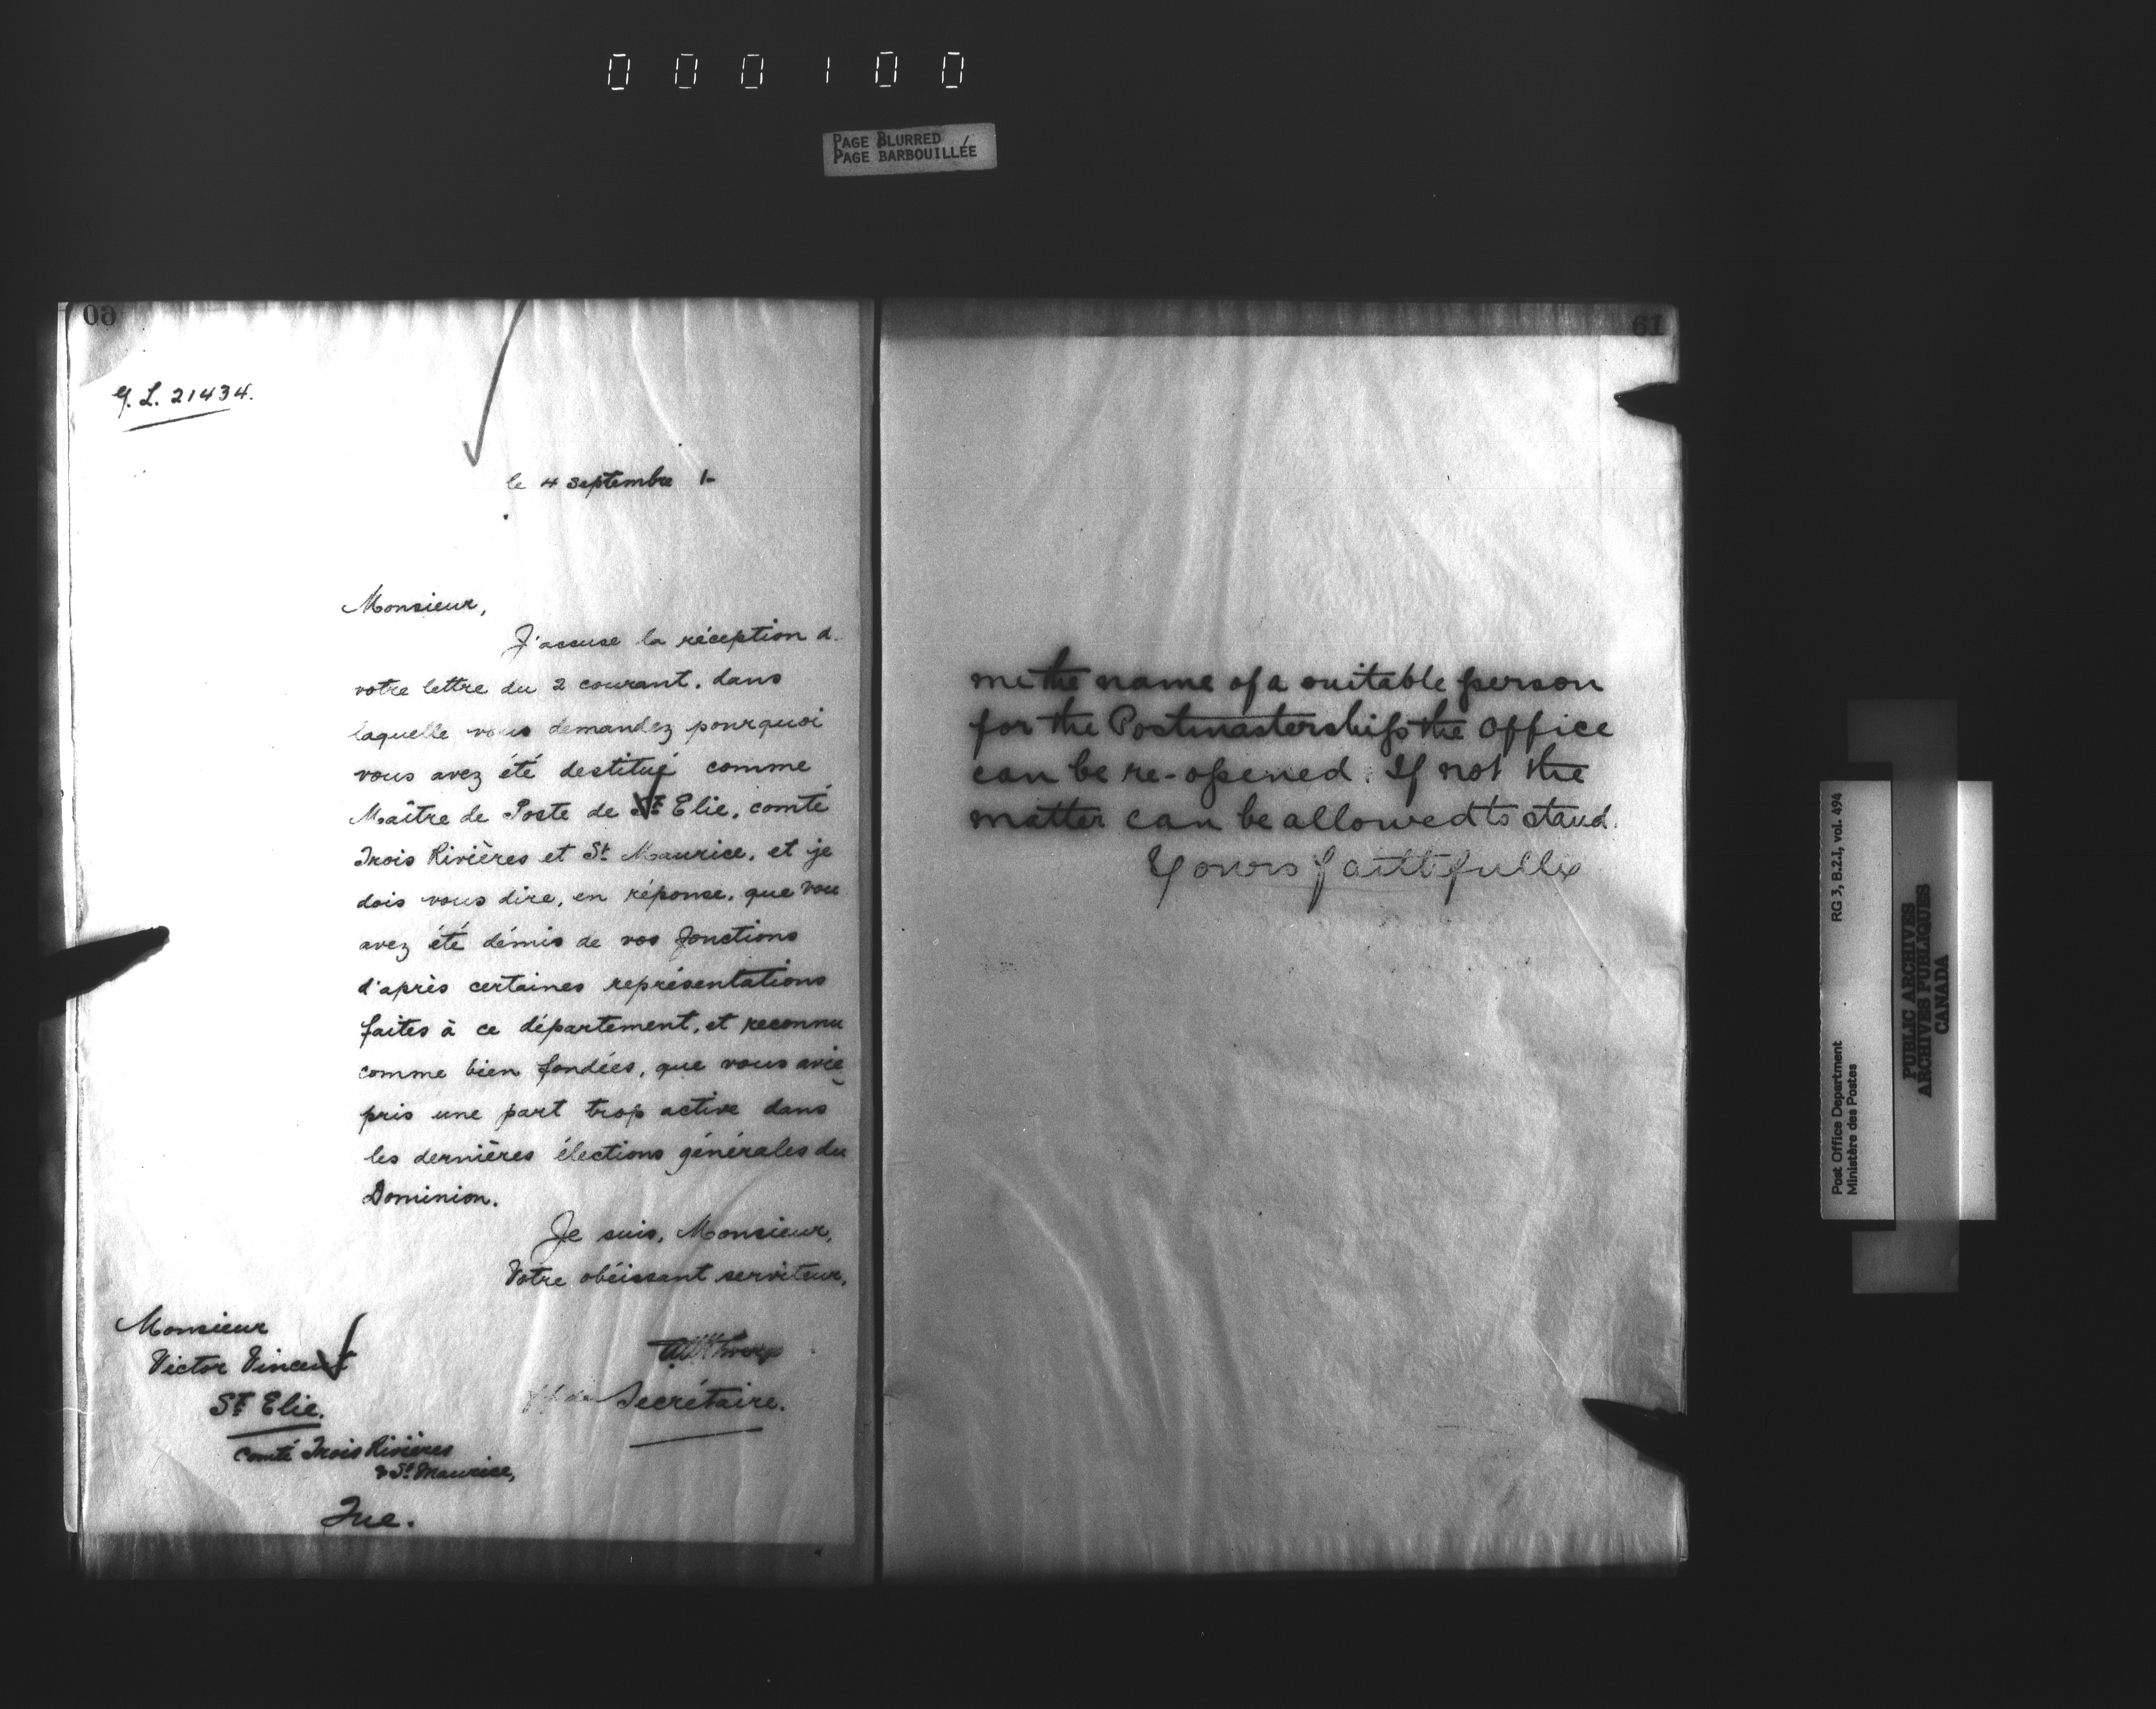 000100
PAGE BLURRED
PAGE BARBOUILLÉE
60
G. L. 21434.
le 4 Septembre 1-
Monsieur,
J'accuse la réception d
votre lettre du 2 courant, dans
laquelle vous demandez pourquoi
vous avez été destitué comme
Maître de Poste de St Elie, comté
Trois Rivières et St Maurice, et je
dois vous dire, en réponse, que vou
avez été démis de vos fonctions
d'après certaines représentations
faites à ce département, et reconnu
comme bien fondées, que vous avie
pris une part trop active dans
les dernières élections générales du
Dominion.
Je suis, Monsieur,
Votre obéissant serviteur,
Secrétaire.
Monsieur
Victor Vincent
St Elie.
Comté Trois Rivières
& St Maurice,
Que.
61
me the name of a suitable person
for the Postmastership the Office
can be re-opened. If not the
matter can be allowed to stand.
Yours faithfully
Post Office Department
Ministère des Postes
RG 3, B.2.1, vol. 494
PUBLIC ARCHIVES
ARCHIVES PUBLIQUES
CANADA